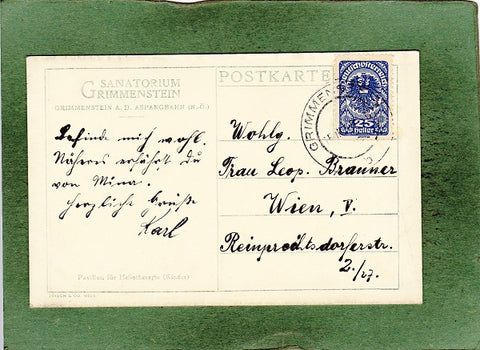 SANATORIUM
GRIMMENSTEIN
GRIMMENSTEIN A. D. ASPANGBAHN (N.-Ö.)
POSTKARTE
Deutschösterreich
25
Heller
GRIMMENS
Befinde mich wohl.
Näheres erfährst du
von Mina.
Herzliche Grüße
Karl
Wohlg.
Frau Leop. Brauner
Wien, V.
Reinprechtsdorferstr.
2./27.
Pavillon für